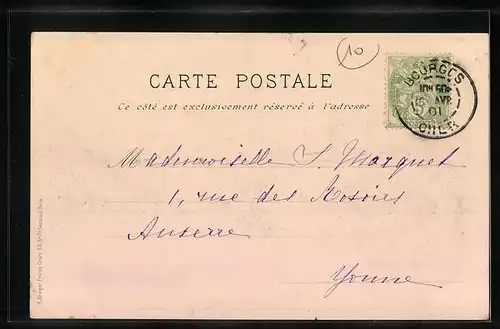 10
CARTE POSTALE
Ce côté est exclusivement réservé à l'adresse
BOURGES
AVR
01
CHER
Mademoiselle S. Marquet
1, rue des Rosiers
Auxerre
Yonne